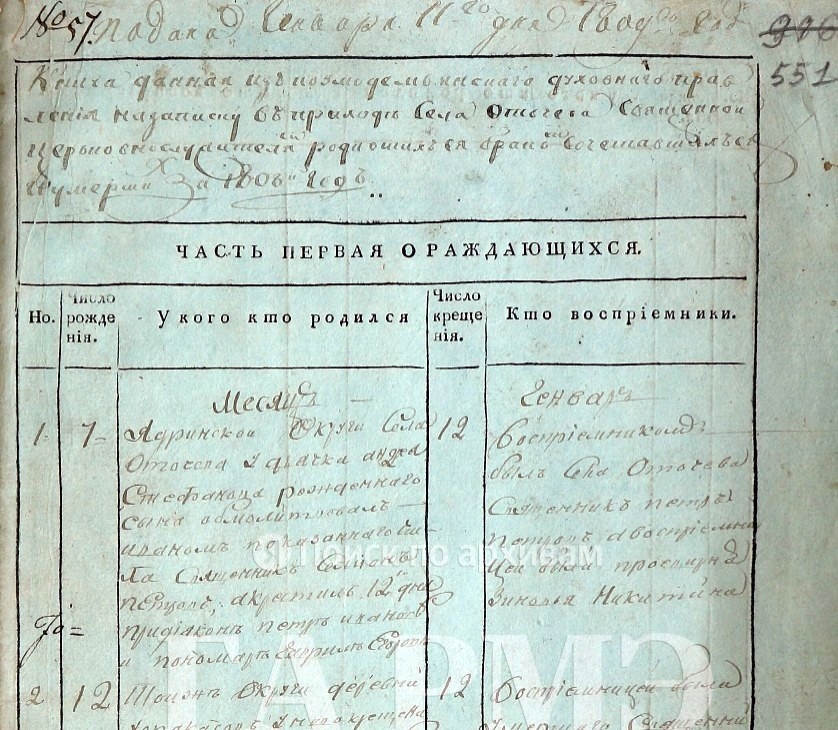 № 57. подана Генваря 11го дня 1809го года
551
Книга данная изъ козмодемьянскаго духовнаго прав
ления на записку въ приходѣ Села Оточева Священно и
церковнослужителя родившихся бракомъ сочетавшихся
и умершихъ за 1808й Годъ
ЧАСТЬ ПЕРВАЯ О РАЖДАЮЩИХСЯ.
Но.
Число
рожде
нія.
У кого кто родился
Число
креще
нія.
Кто воспріемники.
Месяцъ
Генварь
1.
7
Ядринской Округи Села
Оточева у дьячка андрея
Стефанова рожденнаго
сына обмолитвовалъ
иваномъ показаннаго Се-
ла Священникъ
петровъ, а крестилъ 12 дня
придіаконѣ петрѣ иванове
и пономарѣ
12
Воспріемникомъ
былъ Села Оточева
Священникъ петръ
петровъ, а воспріемни
цей была
Зиновья Никитина
2
12
Округи деревни
12
Воспріемницей была
умершаго Священни
Поиско по архивам
ГАРМЭ